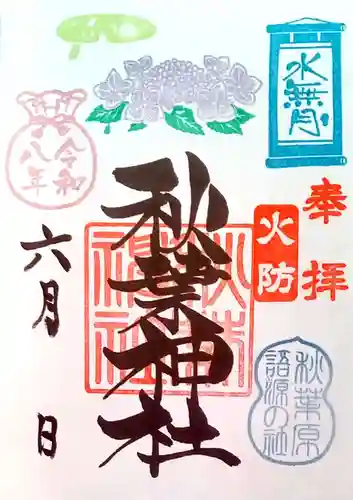 水無月
奉拝
火防
秋葉神社
秋葉神社
秋葉原
語源の社
令和
八年
六月 日